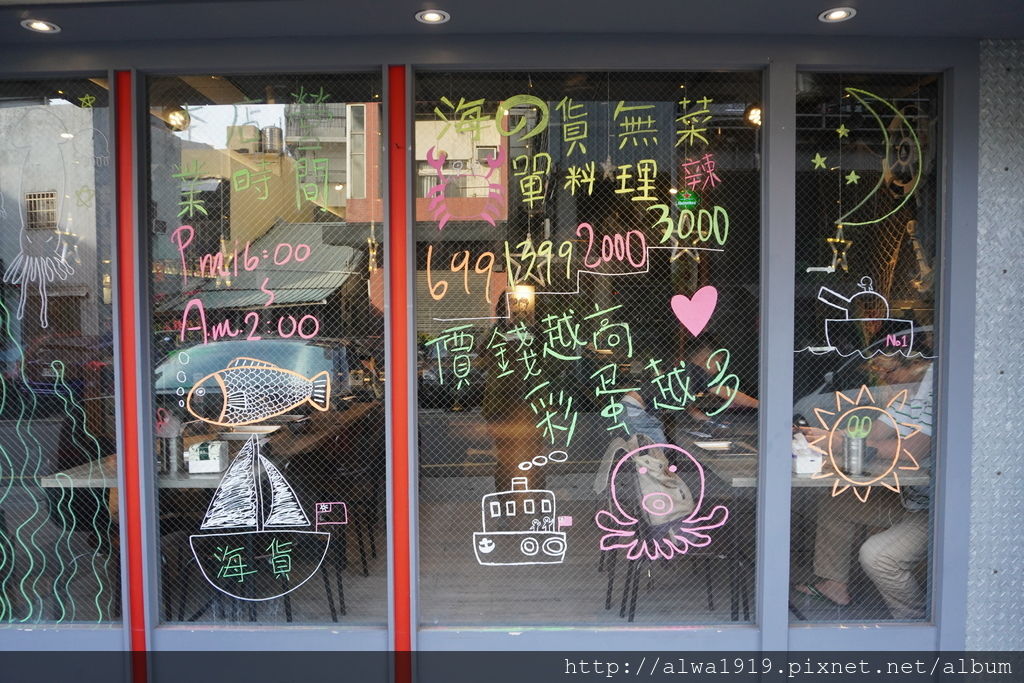 營
業時間
P.m.16:00
S
A.m.2:00
海の貨無菜
單料理辣
699 1399 2000 3000
價錢越高
彩蛋越多
No1
海貨
http://alwa1919.pixnet.net/album